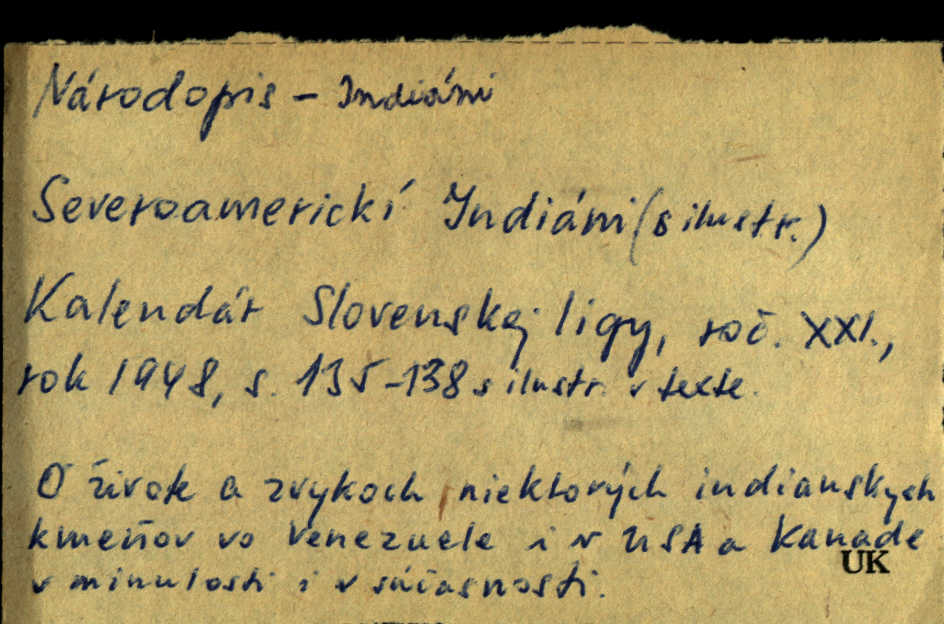 Národopis - Indiáni
Severoamerickí Indiáni (s ilustr.)
Kalendár Slovenskej ligy, roč. XXI.,
rok 1948, s. 135-138 s ilustr. v texte.
O živote a zvykoch niektorých indianskych
kmeňov vo Venezuele i v USA a Kanade
UK
v minulosti i v súčasnosti.